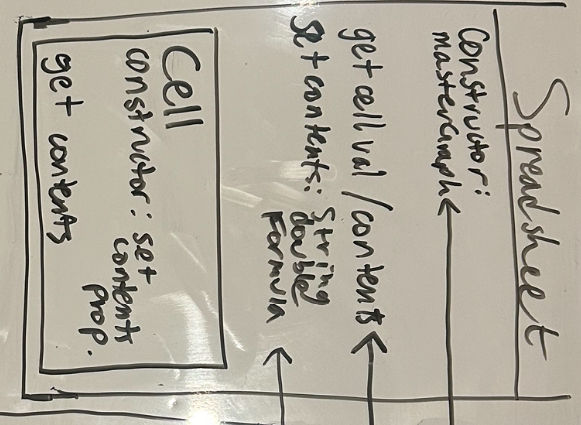 Spreadsheet
Constructor:
masterGraph
get cell val / contents
set contents: String
double
Formula
Cell
constructor: set
contents
prop.
get contents